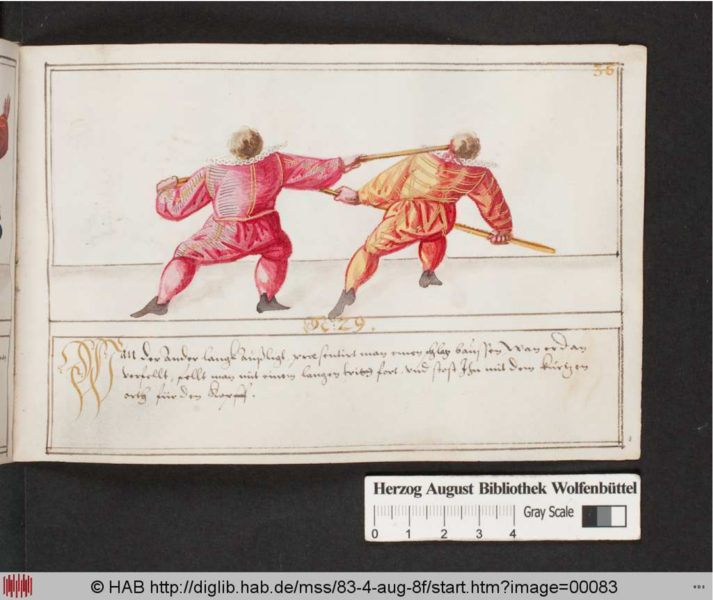 36
No: 29.
Wan der Ander langk außligt, presentirt man einen schlag baussen Wan er dan
verfellt, fellt man mit einem langen tritt fort, und stost Ihn mit dem kurtzen
ortt für den Kopff.
Herzog August Bibliothek Wolfenbüttel
0 1 2 3 4 Gray Scale
© HAB http://diglib.hab.de/mss/83-4-aug-8f/start.htm?image=00083